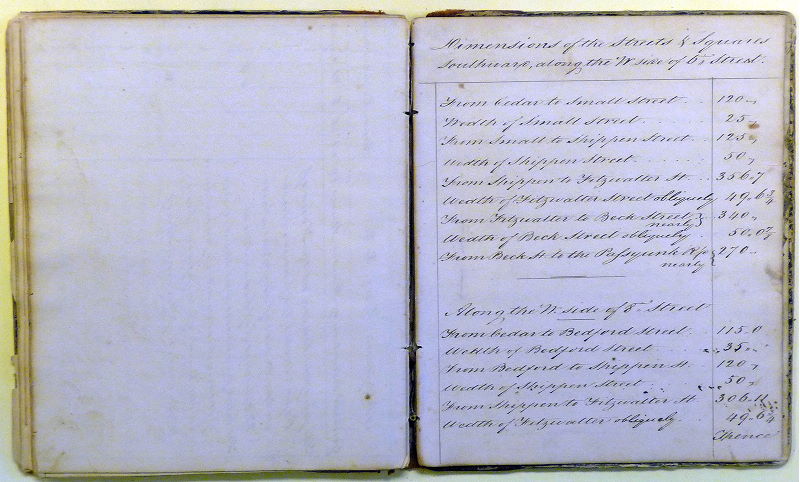 Dimensions of the Streets & Squares
Southward, along the W. side of 6th Street.
From Cedar to Small Street . . 120 "
Wedth of Small Street . . . . 25 "
From Small to Shippen Street . . 125 "
Wedth of Shippen Street . . . . 50 "
From Shippen to Fitzwalter St. . . 356.7
Wedth of Fitzwalter Street obliquely 49.6 3/4
From Fitzwalter to Beck Street nearly } 340 "
Wedth of Beck Street obliquely . 50.0
From Beck St. to the Passyunk Rd nearly } 270 "
Along the W. side of 8th Street
From Cedar to Bedford Street . . 115.0
Wedth of Bedford Street . . . 35 "
From Bedford to Shippen St. . . 120 "
Wedth of Shippen Street . . . 50 "
From Shippen to Fitzwalter St. 306.11
Wedth of Fitzwalter obliquely . . 49.6 3/4
Thence